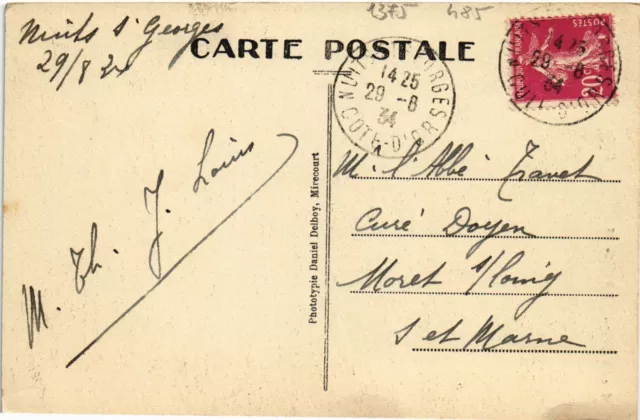 Nuits St Georges
29/8 34
1375 485
CARTE POSTALE
NUITS-ST-GEORGES
14 25
29 -8
34
COTE-D'OR
POSTES
20
14 25
29 -8
34
COTE-D'OR
M. Th. J. Louis
Phototypie Daniel Delboy, Mirecourt
M. l'Abbé Travet
Curé Doyen
Moret s/loing
S et Marne